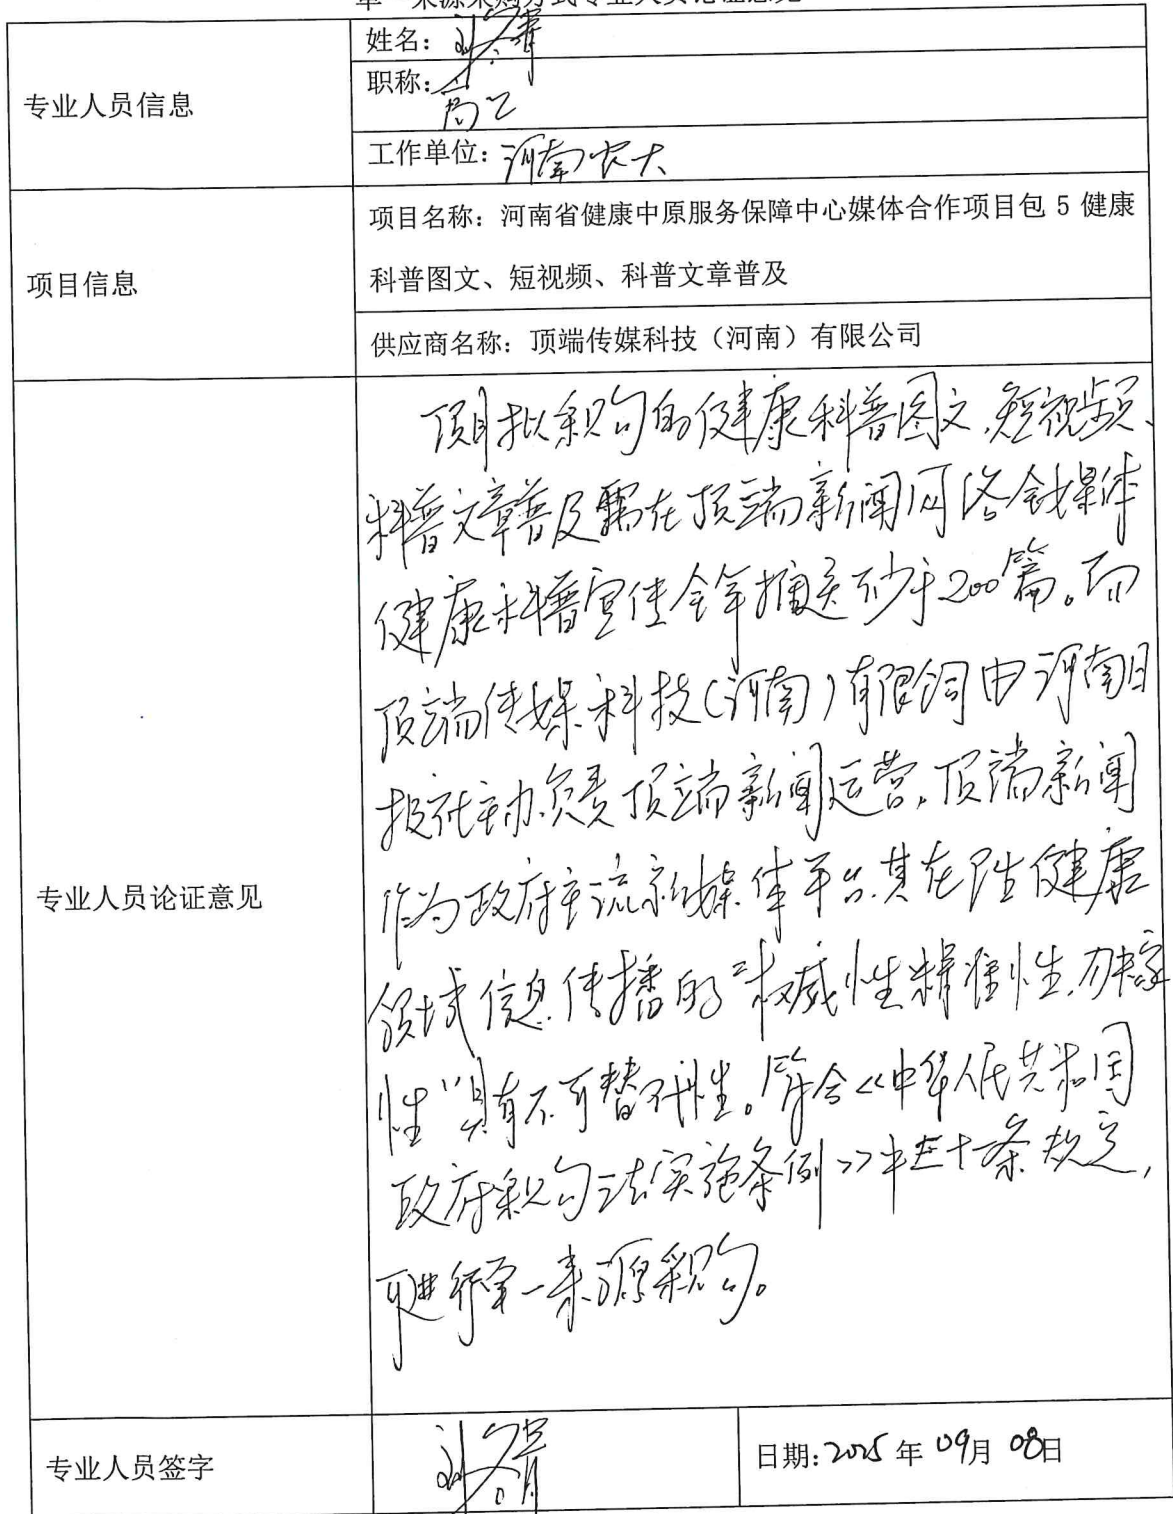 单一来源采购方式专业人员论证意见
专业人员信息
姓名：
职称：高工
工作单位：河南农大
项目信息
项目名称：河南省健康中原服务保障中心媒体合作项目包 5 健康
科普图文、短视频、科普文章普及
供应商名称：顶端传媒科技（河南）有限公司
专业人员论证意见
项目拟采购的健康科普图文、短视频、
科普文章普及需在顶端新闻网络全媒体
健康科普宣传全年推送不少于200篇。而
顶端传媒科技（河南）有限公司由河南日
报社主办、负责顶端新闻运营，顶端新闻
作为政府主流新媒体平台，其在卫生健康
领域信息传播的“权威性、精准性、
性”具有不可替代性。符合《中华人民共和国
政府采购法实施条例》中 条规定，
可进行单一来源采购。
专业人员签字
日期：2025 年 09月 08日